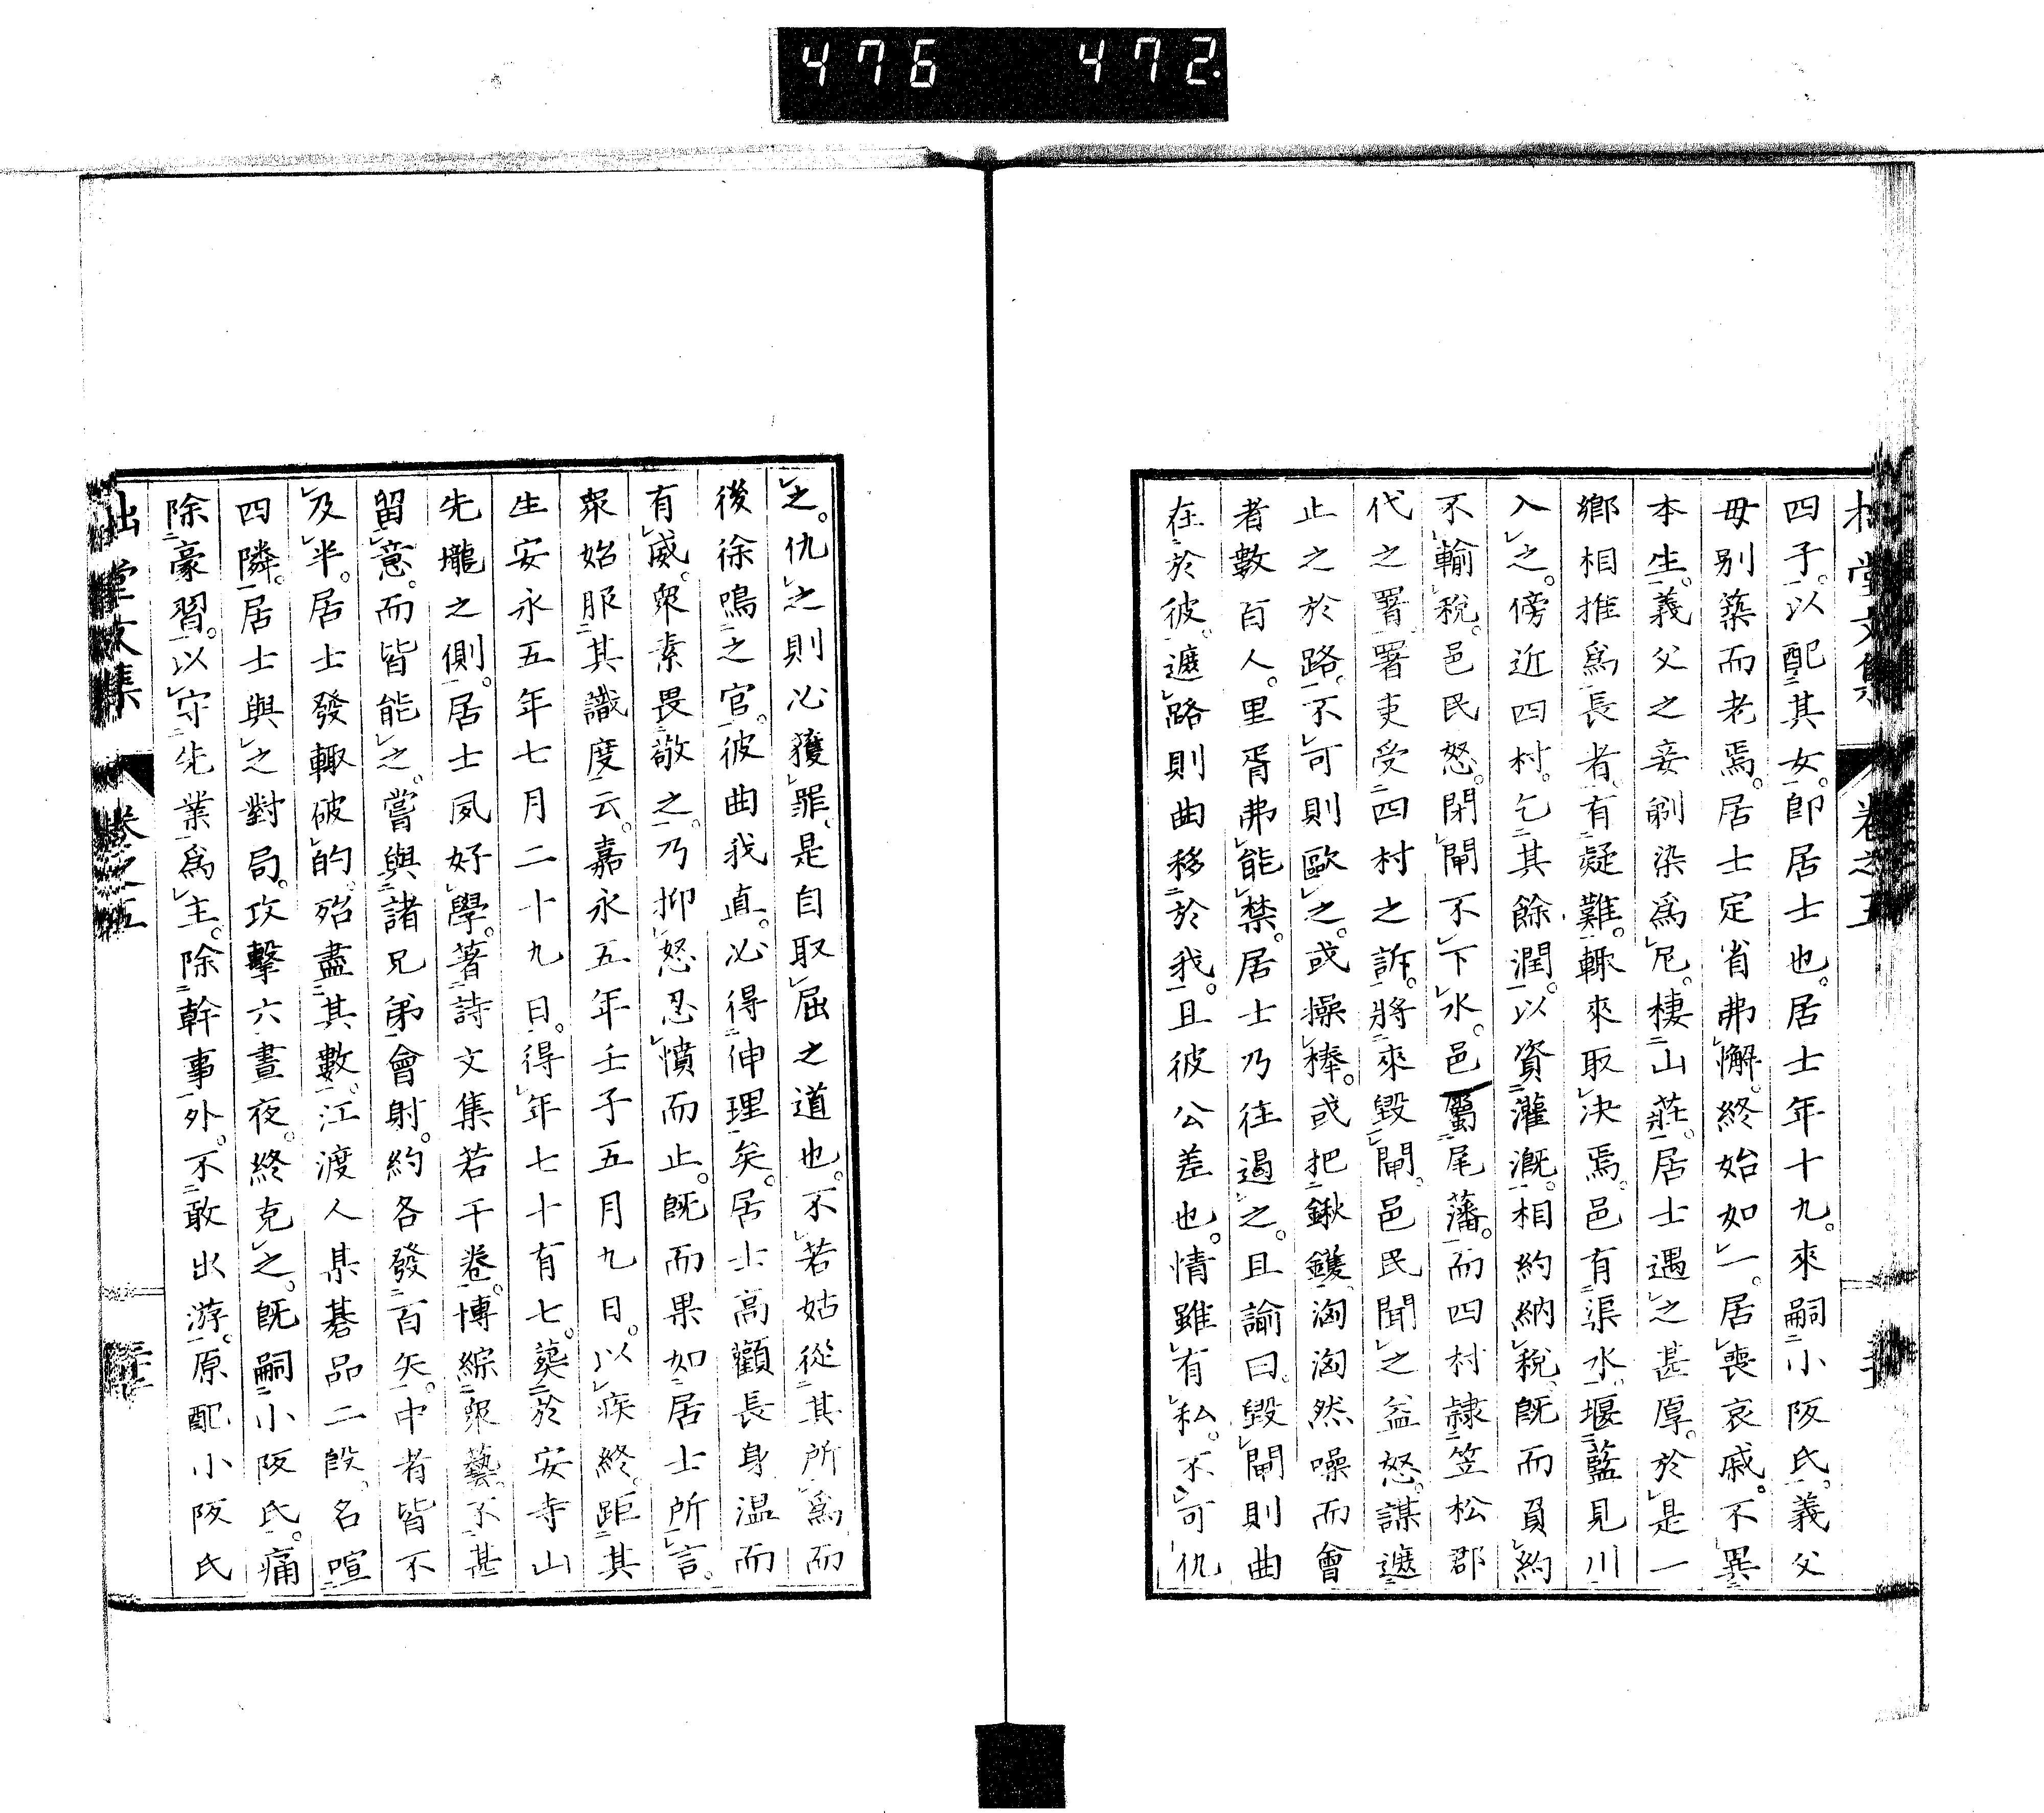 476 472
四子。以配其女。卽居士也。居士年十九。來嗣小阪氏。義父
母別築而老焉。居士定省弗懈。終始如一。居喪哀戚。不異
本生。義父之妾剃染爲尼。棲山莊。居士遇之甚厚。於是一
鄉相推爲長者。有疑難。輒來取决焉。邑有渠水。堰藍見川
入之。傍近四村。乞其餘潤。以資灌漑。相約納稅。旣而負約
不輸稅。邑民怒。閉閘不下水。邑屬尾藩。而四村隷笠松郡
代之署。署吏受四村之訴。將來毀閘。邑民聞之益怒。謀遮
止之於路。不可則歐之。或操棒。或把鍬钁。洶洶然噪而會
者數百人。里胥弗能禁。居士乃往遏之。且諭曰。毀閘則曲
在於彼。遮路則曲移於我。且彼公差也。情雖有私。不可仇
之。仇之則必獲罪。是自取屈之道也。不若姑從其所爲而
後徐鳴之官。彼曲我直。必得伸理矣。居士高顴長身温而
有威。衆素畏敬之。乃抑怒忍憤而止。旣而果如居士所言。
衆始服其識度云。嘉永五年壬子五月九日。以疾終。距其
生安永五年七月二十九日。得年七十有七。葬於安寺山
先壠之側。居士夙好學。著詩文集若干卷。博綜衆藝。不甚
留意。而皆能之。嘗與諸兄弟會射。約各發百矢。中者皆不
及半。居士發輒破的。殆盡其數。江渡人某碁品二段。名喧
四隣。居士與之對局。攻擊六晝夜。終克之。旣嗣小阪氏。痛
除豪習。以守先業爲主。除幹事外。不敢出游。原配小阪氏
堂文集 卷之五